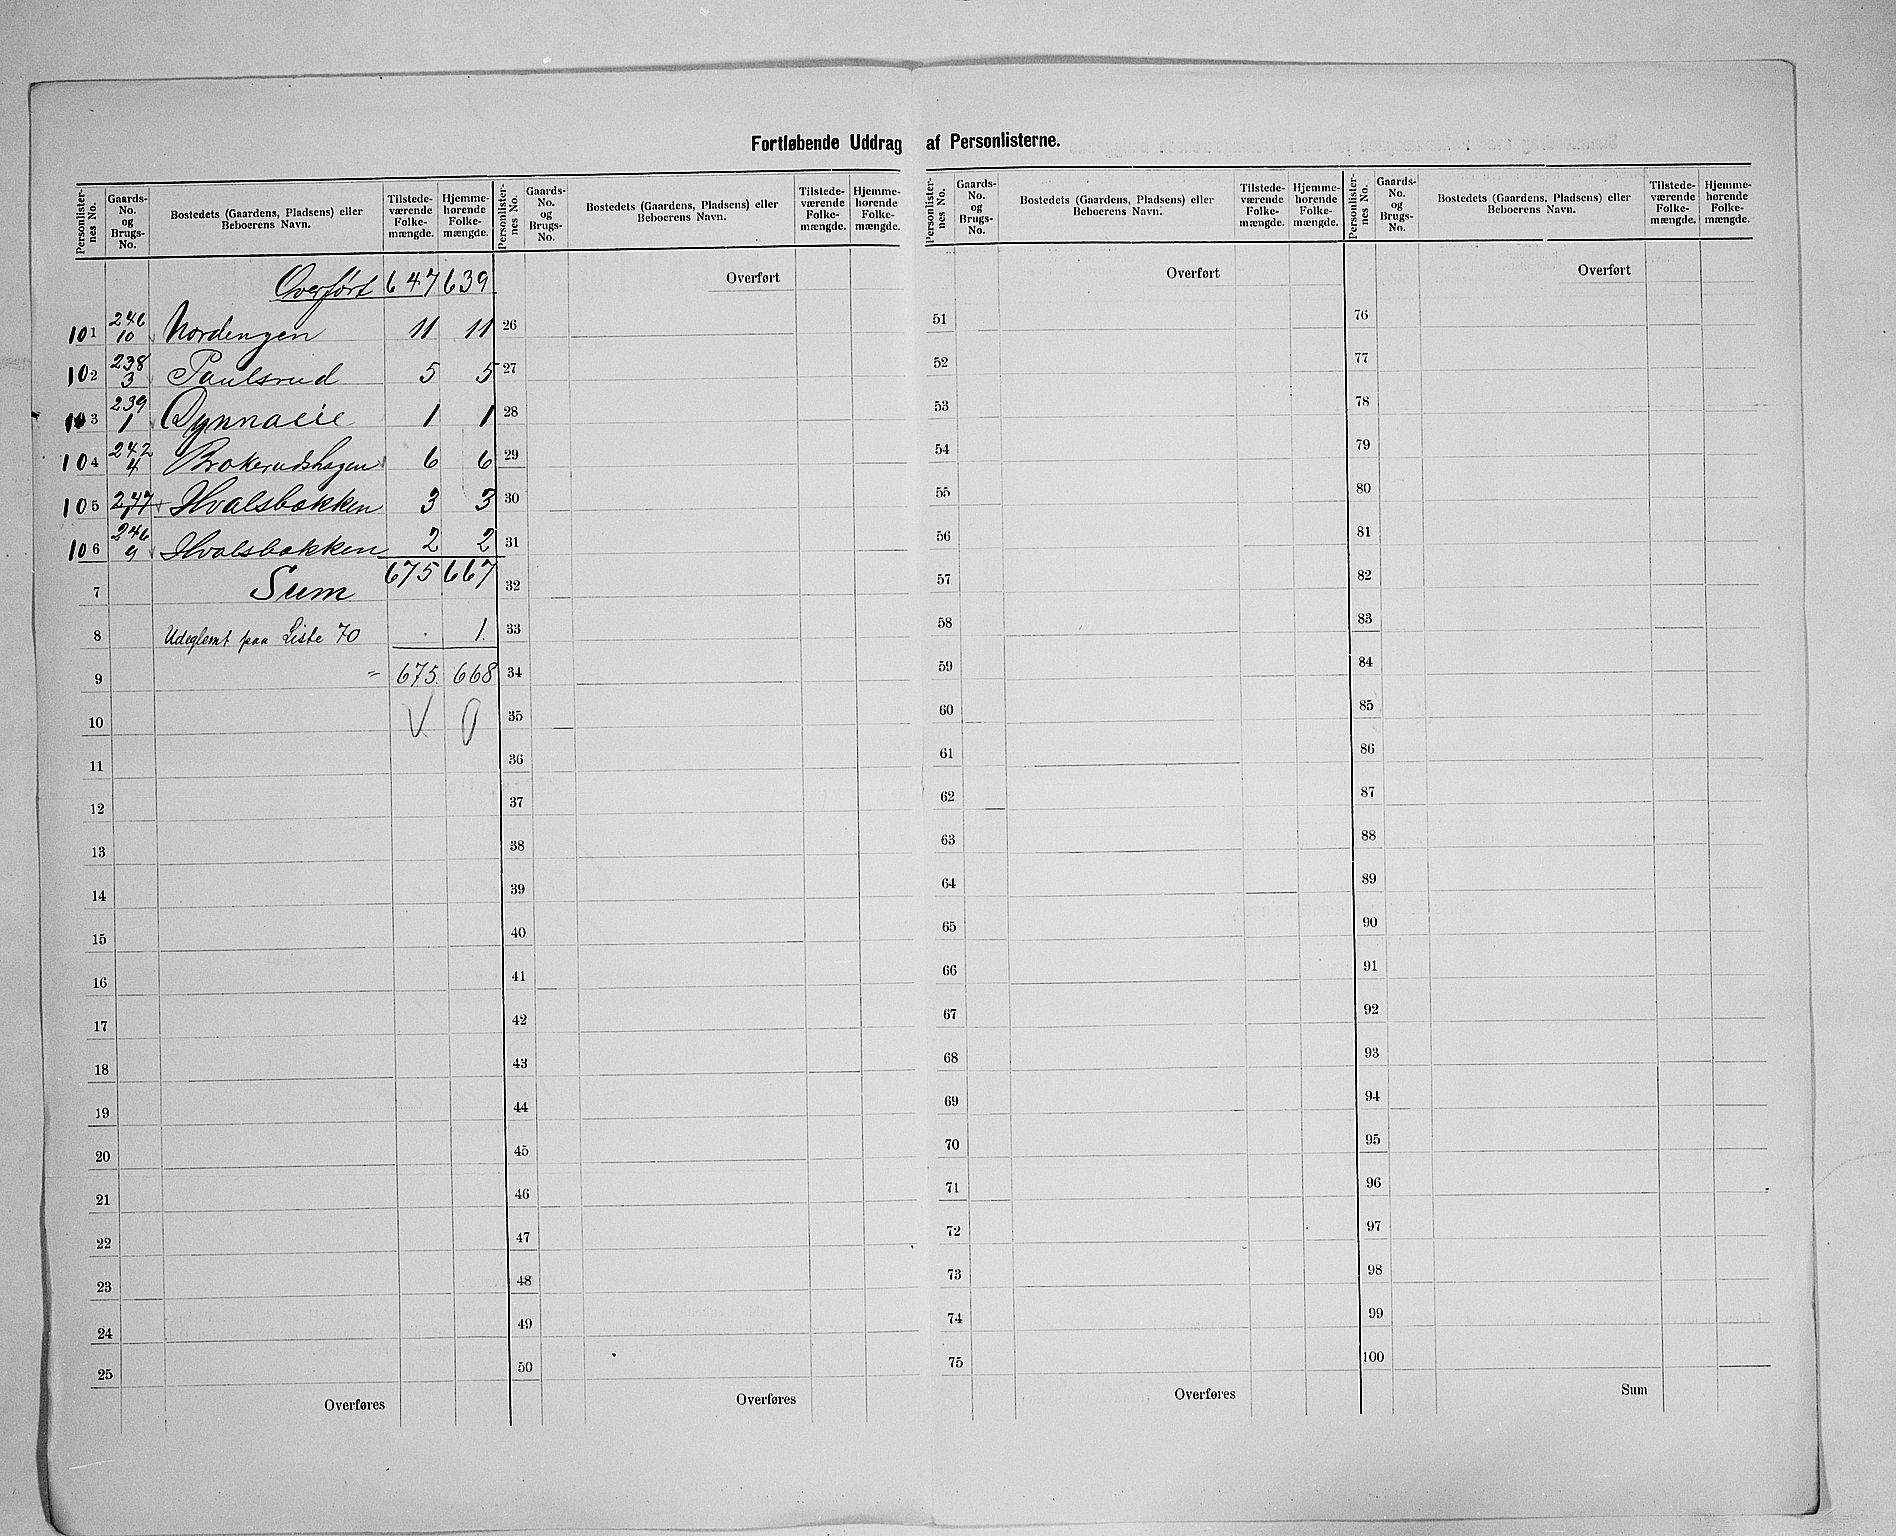 Fortløbende Uddrag af Personlisterne.
Personlisternes No. Gaards-No. og Brugs-No. Bostedets (Gaardens, Pladsens) eller Beboerens Navn. Tilstedeværende Folkemængde. Hjemmehørende Folkemængde.
Overført 647 639
101 246/10 Nordengen 11 11
102 238/3 Paulsrud 5 5
103 239/1 Dynnaeie 1 1
104 242/4 Brokerudshagen 6 6
105 247/1 Hvalsbakken 3 3
106 246/9 Hvalsbakken 2 2
7 Sum 675 667
8 Udeglemt paa Liste 70 . 1.
9 = 675. 668
10
11
12
13
14
15
16
17
18
19
20
21
22
23
24
25
Overføres
Personlisternes No. Gaards-No. og Brugs-No. Bostedets (Gaardens, Pladsens) eller Beboerens Navn. Tilstedeværende Folkemængde. Hjemmehørende Folkemængde.
Overført
26
27
28
29
30
31
32
33
34
35
36
37
38
39
40
41
42
43
44
45
46
47
48
49
50
Overføres
Personlisternes No. Gaards-No. og Brugs-No. Bostedets (Gaardens, Pladsens) eller Beboerens Navn. Tilstedeværende Folkemængde. Hjemmehørende Folkemængde.
Overført
51
52
53
54
55
56
57
58
59
60
61
62
63
64
65
66
67
68
69
70
71
72
73
74
75
Overføres
Personlisternes No. Gaards-No. og Brugs-No. Bostedets (Gaardens, Pladsens) eller Beboerens Navn. Tilstedeværende Folkemængde. Hjemmehørende Folkemængde.
Overført
76
77
78
79
80
81
82
83
84
85
86
87
88
89
90
91
92
93
94
95
96
97
98
99
100
Sum